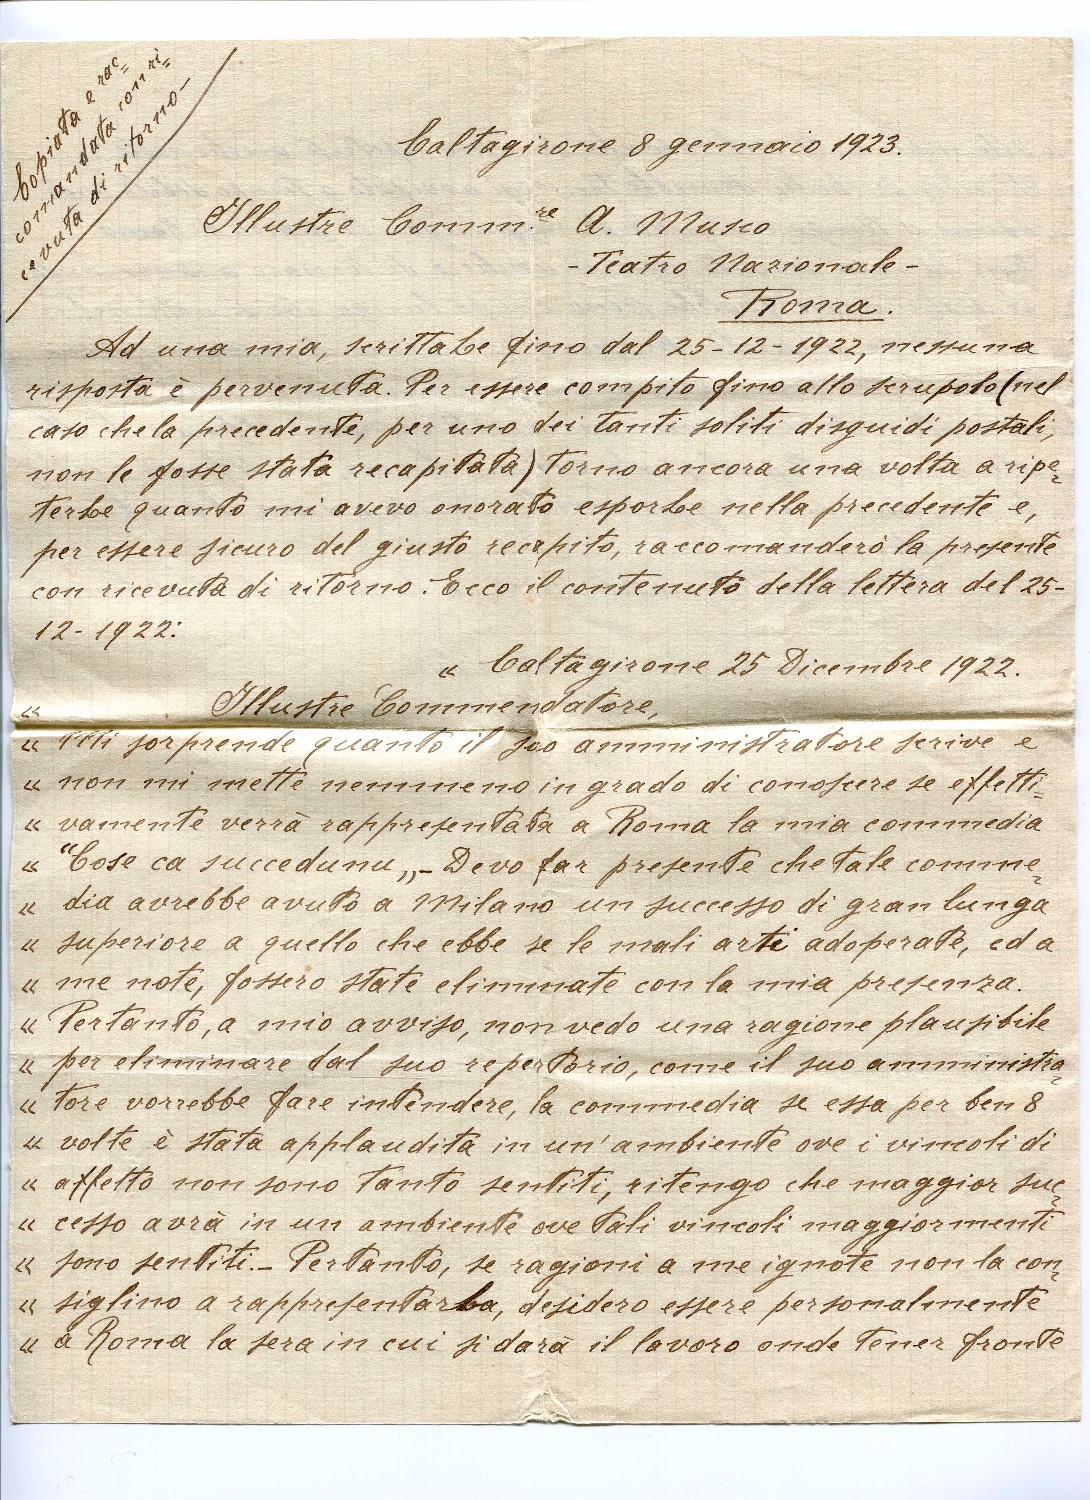 Copiata e rac=
comandata con ri=
cevuta di ritorno-
Caltagirone 8 gennaio 1923.
Illustre Comm.re A. Musco
-Teatro Nazionale-
Roma.
Ad una mia, scrittaLe fino dal 25-12-1922, nessuna
risposta è pervenuta. Per essere compito fino allo scrupolo (nel
caso che la precedente, per uno dei tanti soliti disguidi postali,
non le fosse stata recapitata) torno ancora una volta a ripe=
terLe quanto mi avevo onorato esporLe nella precedente e,
per essere sicuro del giusto recapito, raccomanderò la presente
con ricevuta di ritorno. Ecco il contenuto della lettera del 25-
12-1922:
" Caltagirone 25 Dicembre 1922.
" Illustre Commendatore,
" Mi sorprende quanto il suo amministratore scrive e
" non mi mette nemmeno in grado di conoscere se effetti=
" vamente verrà rappresentata a Roma la mia commedia
" "Cose ca succedunu„- Devo far presente che tale comme=
" dia avrebbe avuto a Milano un successo di gran lunga
" superiore a quello che ebbe se le mali arti adoperate, ed a
" me note, fossero state eliminate con la mia presenza.
" Pertanto, a mio avviso, non vedo una ragione plausibile
" per eliminare dal suo repertorio, come il suo amministra=
" tore vorrebbe fare intendere, la commedia se essa per ben 8
" volte è stata applaudita in un' ambiente ove i vincoli di
" affetto non sono tanto sentiti, ritengo che maggior suc=
" cesso avrà in un ambiente ove tali vincoli maggiormenti
" sono sentiti.- Pertanto, se ragioni a me ignote non la con=
" siglino a rappresentarLa, desidero essere personalmente
" a Roma la sera in cui si darà il lavoro onde tener fronte